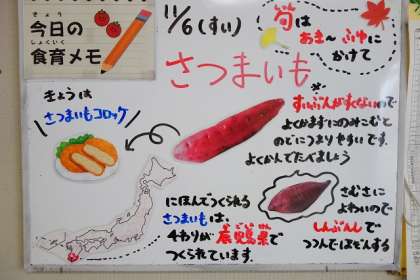 きょう
今日の
しょくいく
食育メモ
11/6(すい)
旬は
あき〜ふゆに
かけて
さつまいも
きょうは
さつまいもコロッケ
すいぶんがすくないので
よくかまずにのみこむと
のどにつまりやすいです。
よくかんでたべましょう
にほんでつくられる
さつまいもは、
4わりが鹿児島県で
つくられています。
さむさに
よわいので
しんぶんしで
つつんでほぞんする